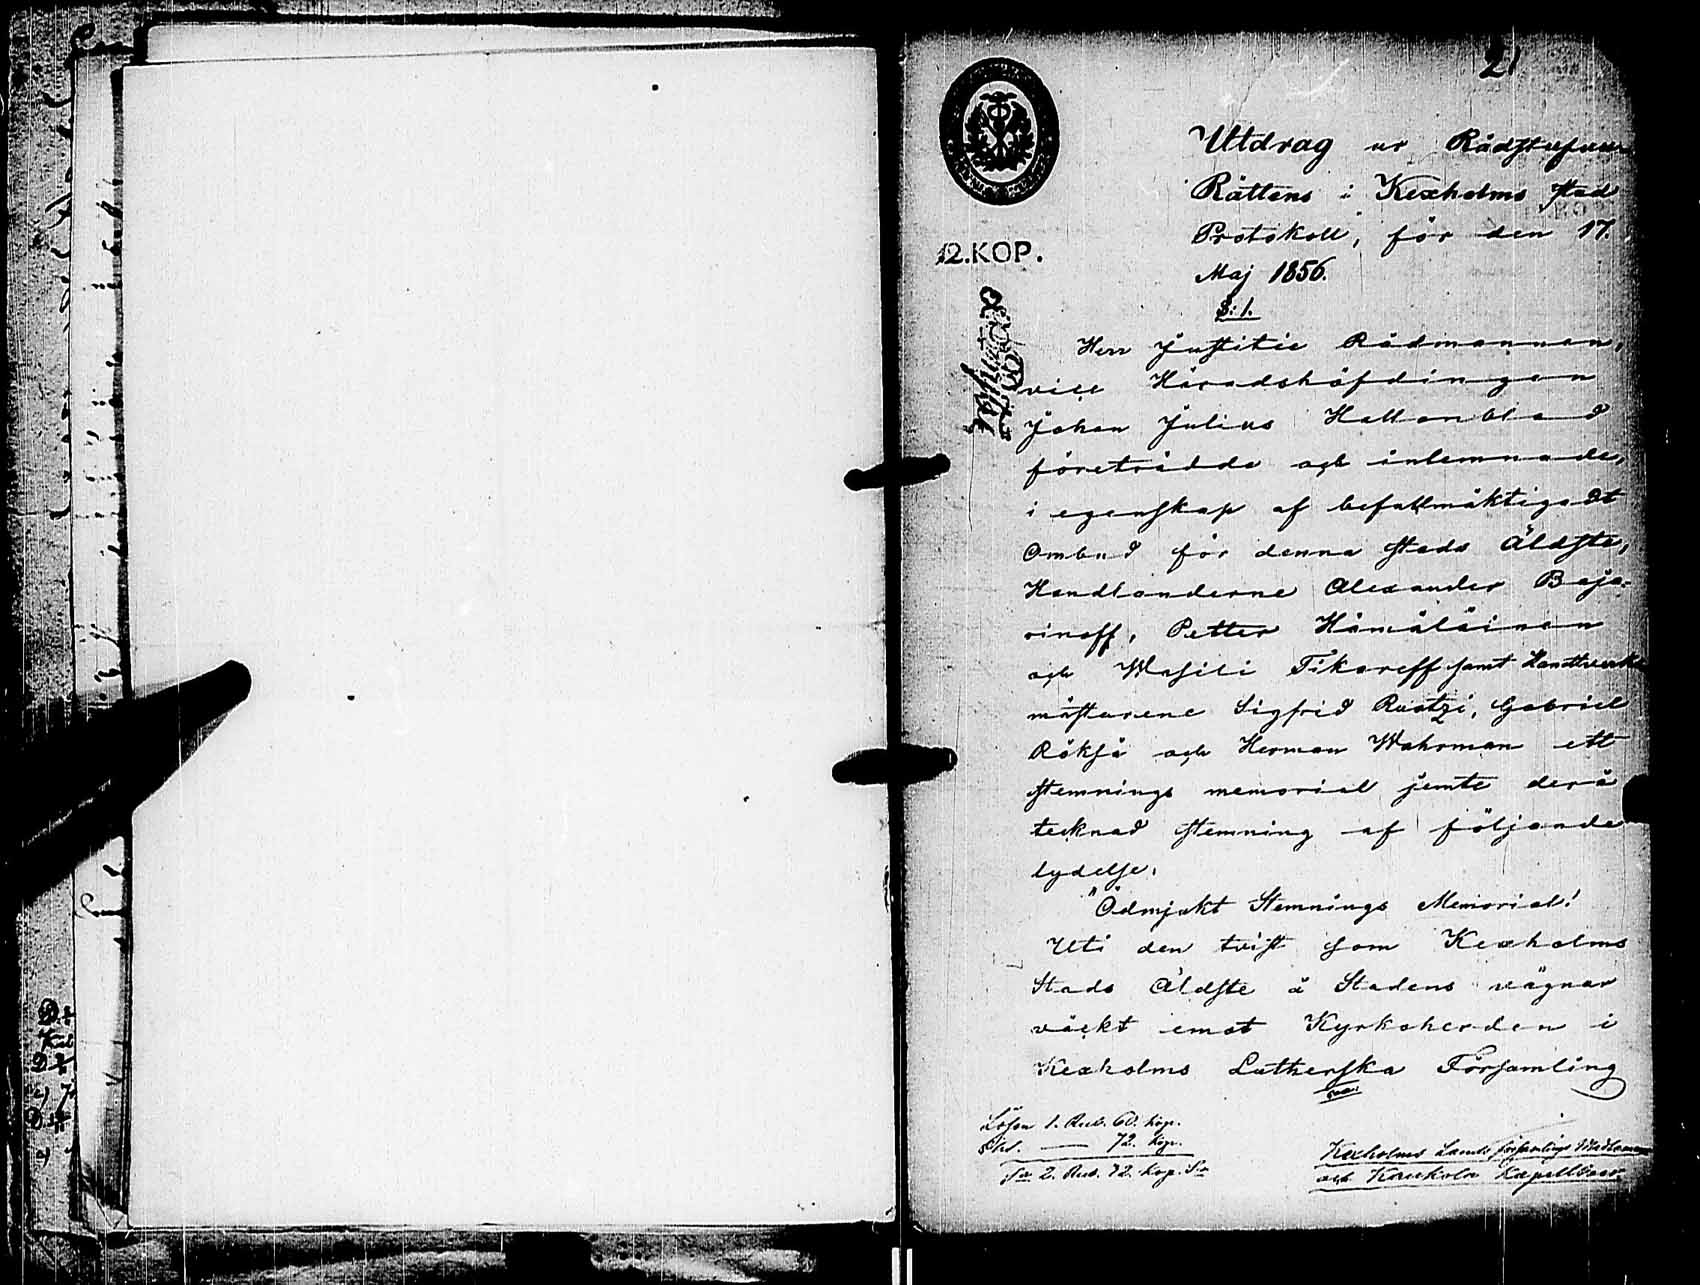 21
Utdrag ur Rådstufvu
Rättens i Kexholms stad
Protokoll, för den 17.
Maj 1856.
§: 1.
12.KOP.
Herr Justitie Rådmannen,
vice Häradshöfdingen
Johan Julius Hallonblad
företrädde och inlemnade,
i egenskap af befullmäktigadt
Ombud för denna stads Äldste,
Handlanderne Alexander Baja-
rinoff, Petter Hämäläinen
och Wasili Tikareff samt Handtverks
mästarene Sigfrid Raatzi, Gabriel
Röksä och Herman Wahrman ett
stemnings memorial jemte derå
tecknad stemning af följande
lydelse.
"Ödmjukt Stemnings Memorial!
Uti den tvist som Kexholms
Stads Äldste å Stadens vägnar
väckt emot Kyrkoherden i
Kexholms Lutherska Församling
Lösen 1. Rub. 60. kop.
Chs. — 72. kop.
Sa 2. Rub. 32. kop. Sr
Kexholms Lands församlings
och Kaukola Kapell